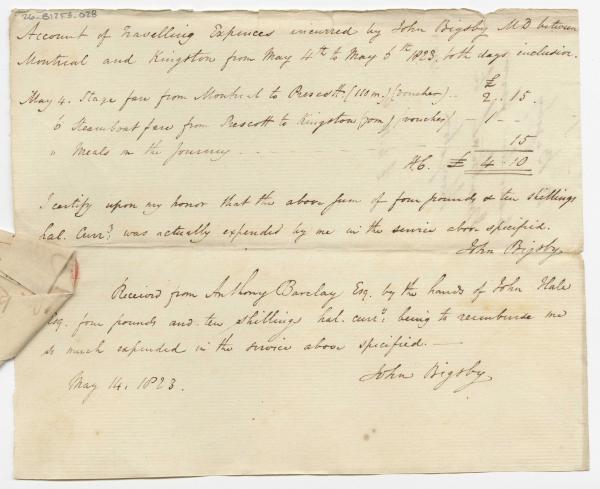 26-B1253-028
Account of Travelling Expences incurred by John Bigsby M.D between
Montreal and Kingston from May 4th to May 6th 1823, both days inclusion.
£
May 4. Stage fare from Montreal to Prescott (110 m.) (voucher) .. 2 .. 15 .
6 Steamboat fare from Prescott to Kingston (70m) (voucher) - 1 -
" Meals on the Journey - - - - 15
H.C. £ 4 - 10
I certify upon my honor that the above sum of four pounds & ten shillings
hal. Curry was actually expended by me in the service above specified.
John Bigsby
Received from Anthony Barclay Esq. by the hands of John Hale
Esq. four pounds and ten shillings hal. curry being to reimburse me
so much expended in the service above specified. —
May 14. 1823.
John Bigsby